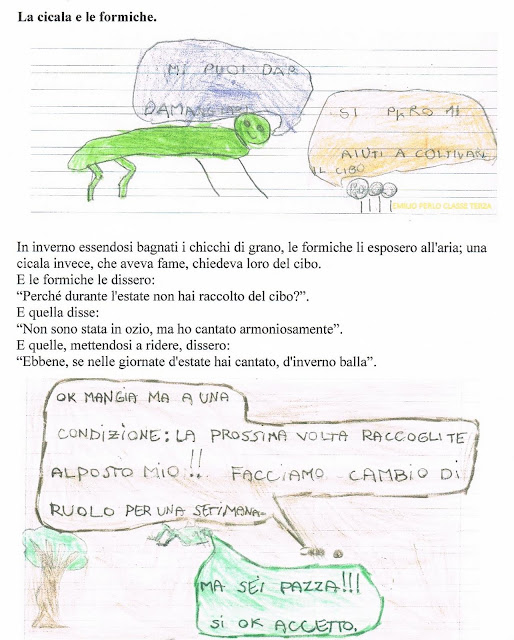 La cicala e le formiche.
MI PUOI DAR
DAMANGIARE
SI PERO TI
AIUTI A COLTIVARE
IL CIBO
EMILIO FERLO CLASSE TERZA
In inverno essendosi bagnati i chicchi di grano, le formiche li esposero all'aria; una
cicala invece, che aveva fame, chiedeva loro del cibo.
E le formiche le dissero:
“Perché durante l'estate non hai raccolto del cibo?”.
E quella disse:
“Non sono stata in ozio, ma ho cantato armoniosamente”.
E quelle, mettendosi a ridere, dissero:
“Ebbene, se nelle giornate d'estate hai cantato, d'inverno balla”.
OK MANGIA MA A UNA
CONDIZIONE: LA PROSSIMA VOLTA RACCOGLI TE
ALPOSTO MIO!! FACCIAMO CAMBIO DI
RUOLO PER UNA SETIMANA.
MA SEI PAZZA!!!
SI OK ACCETTO.